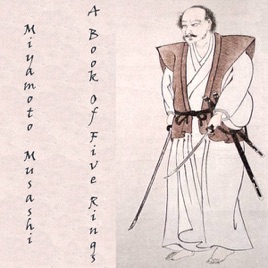 Miyamoto Musashi
A Book Of Five Rings